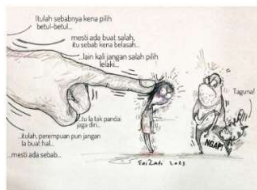 Itulah sebabnya kena pilih
betul-betul...
mesti ada buat salah,
itu sebab kena belasah...
...lain kali jangan salah pilih
lelaki...
Tagung!
...tu la tak pandai
jaga diri...
...itulah, perempuan pun jangan
la buat hal...
...mesti ada sebab...
NGAP!